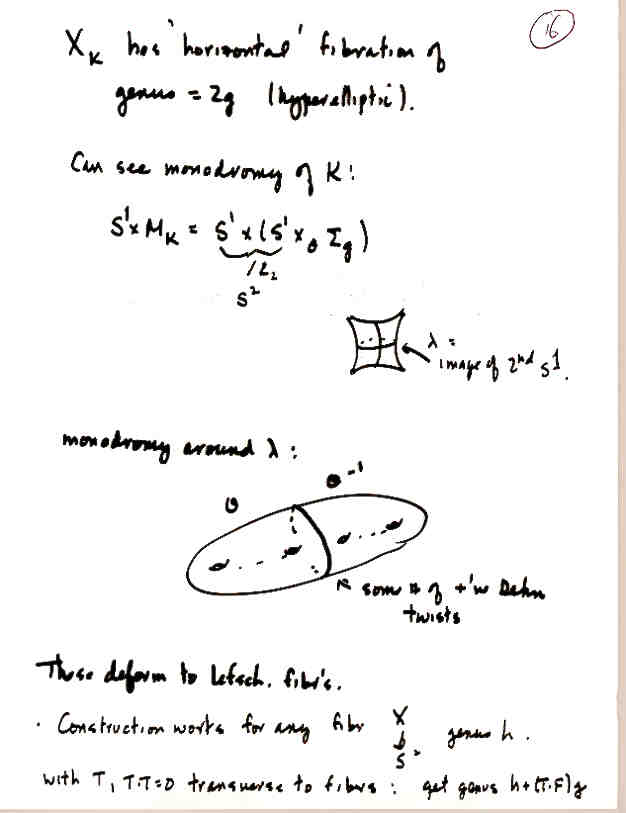 16
X_K has 'horizontal' fibration of
genus = 2g (hyperelliptic).
Can see monodromy of K:
S¹×M_K = S¹×(S¹×_θ Σ_g)
/Z₂
S²
λ =
image of 2nd S¹.
monodromy around λ:
θ θ⁻¹
some # of +'ve Dehn
twists
These deform to Lefsch. fibr's.
· Construction works for any fibr X ↓ S², genus h.
with T, T·T=0 transverse to fibers: get genus h+(T·F)g